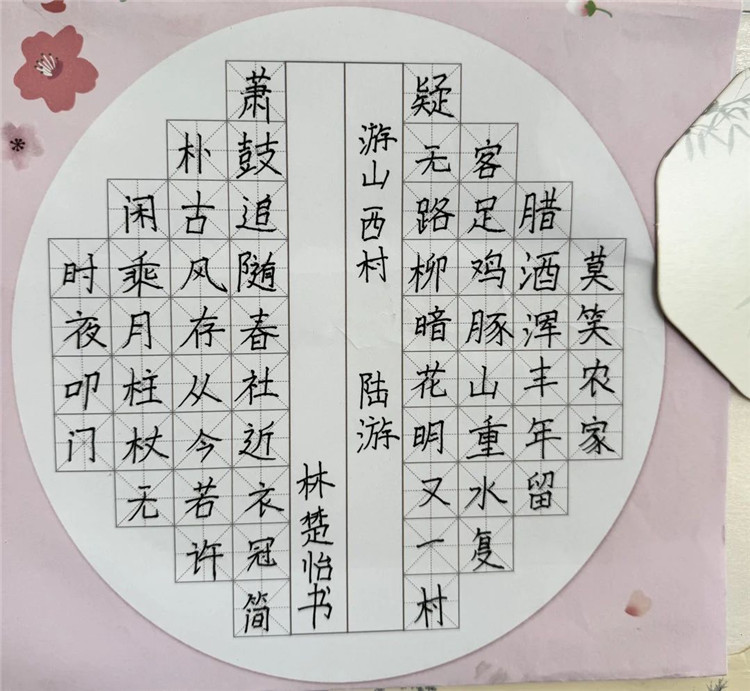 莫笑农家
腊酒浑丰年留
客足鸡豚山重水复
疑无路柳暗花明又一村
游山西村 陆游
林楚怡书
萧鼓追随春社近衣冠简
朴古风存从今若许
闲乘月柱杖无
时夜叩门